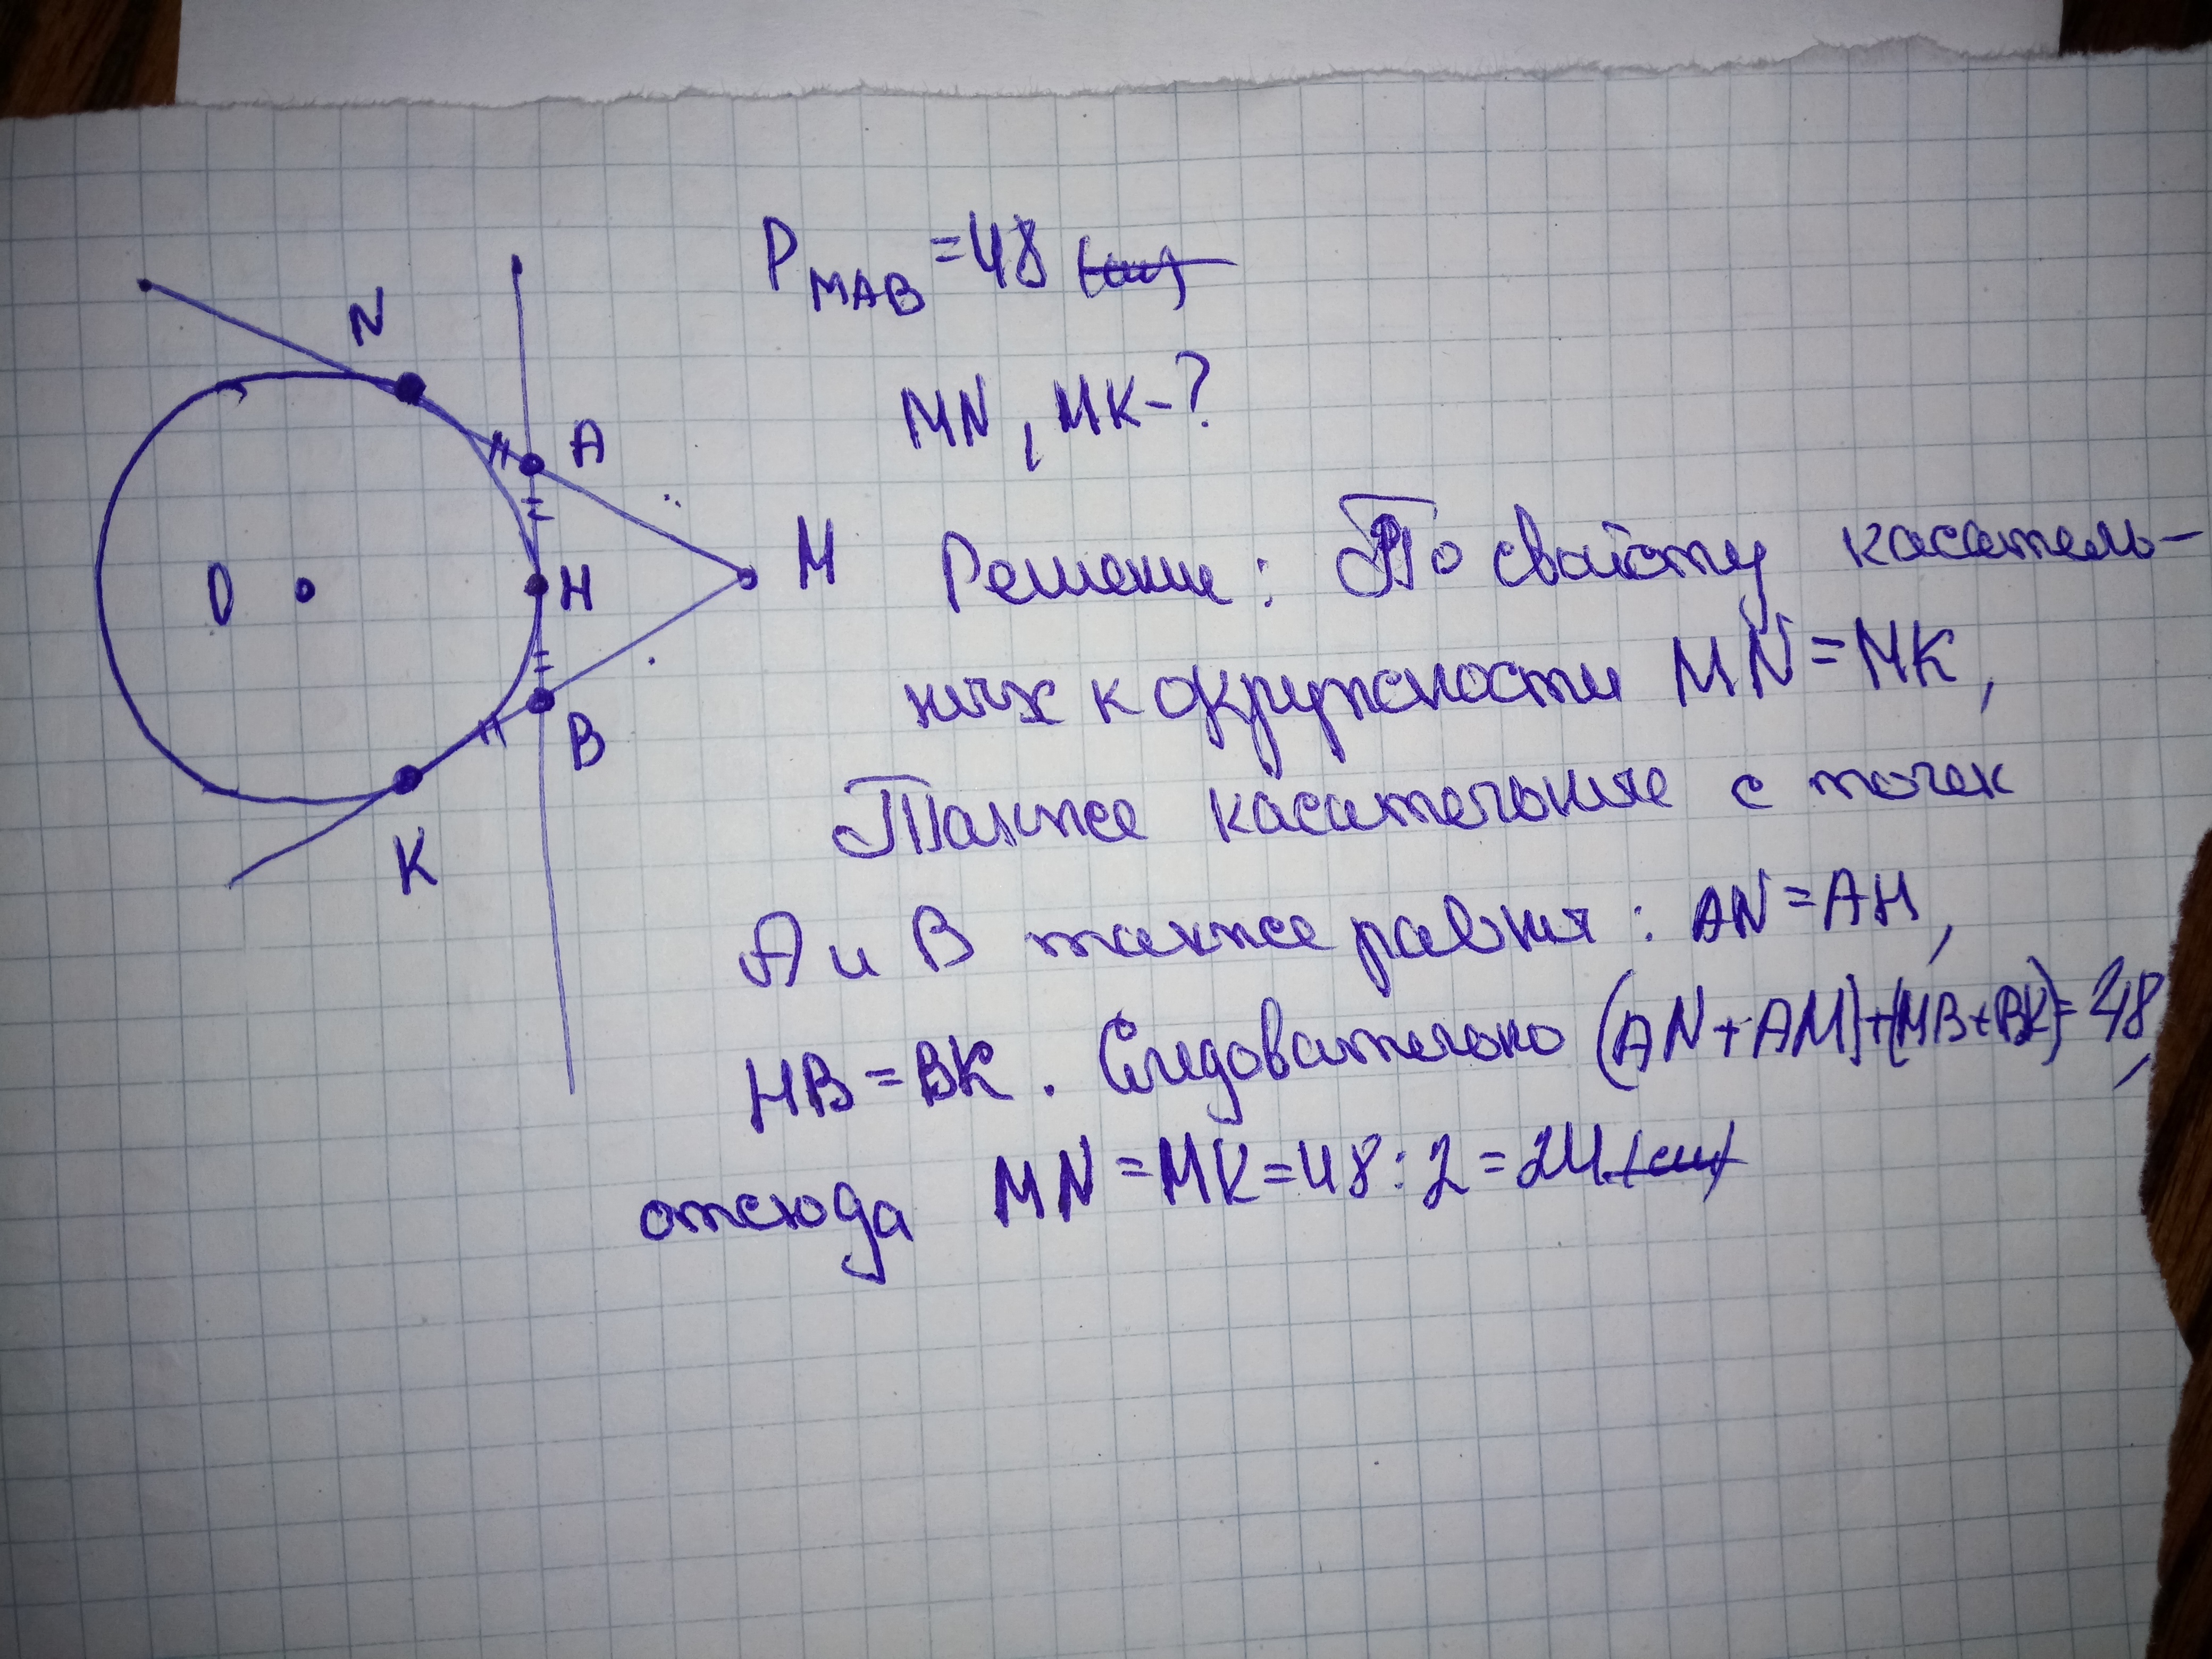 N
A
O
H
M
B
K
P MAB = 48 (см)
MN, MK - ?
Решение: По свойству касатель-
ных к окружности MN = MK,
Также касательные с точек
А и В также равны: AN = AH,
HB = BK. Следовательно (AN + AM) + (MB + BK) = 48,
отсюда MN = MK = 48 : 2 = 24 (см)